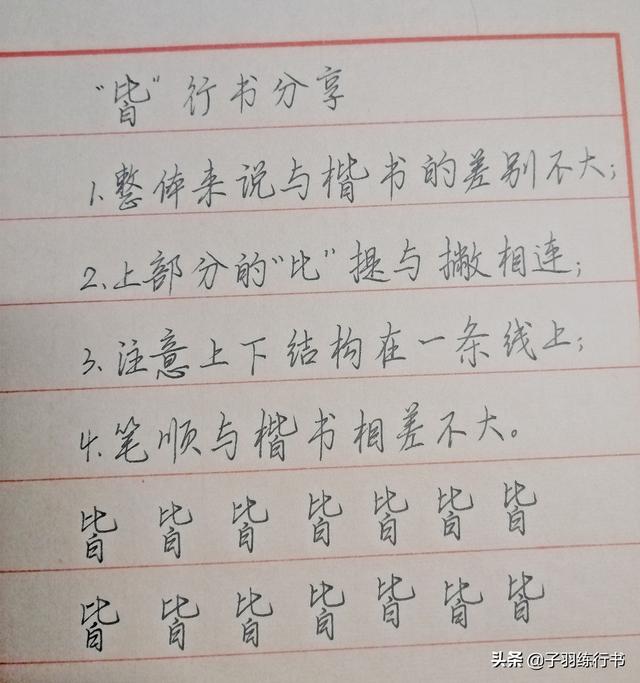 “皆”行书分享
1.整体来说与楷书的差别不大;
2.上部分的“比”提与撇相连;
3.注意上下结构在一条线上;
4.笔顺与楷书相差不大。
皆 皆 皆 皆 皆 皆 皆
皆 皆 皆 皆 皆 皆 皆
头条 @子羽练行书